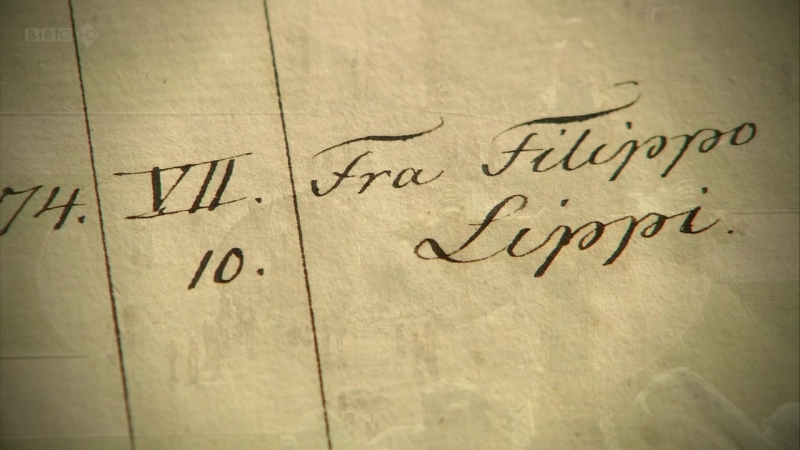 BBC HD
74. VII. Fra Filippo
10. Lippi.